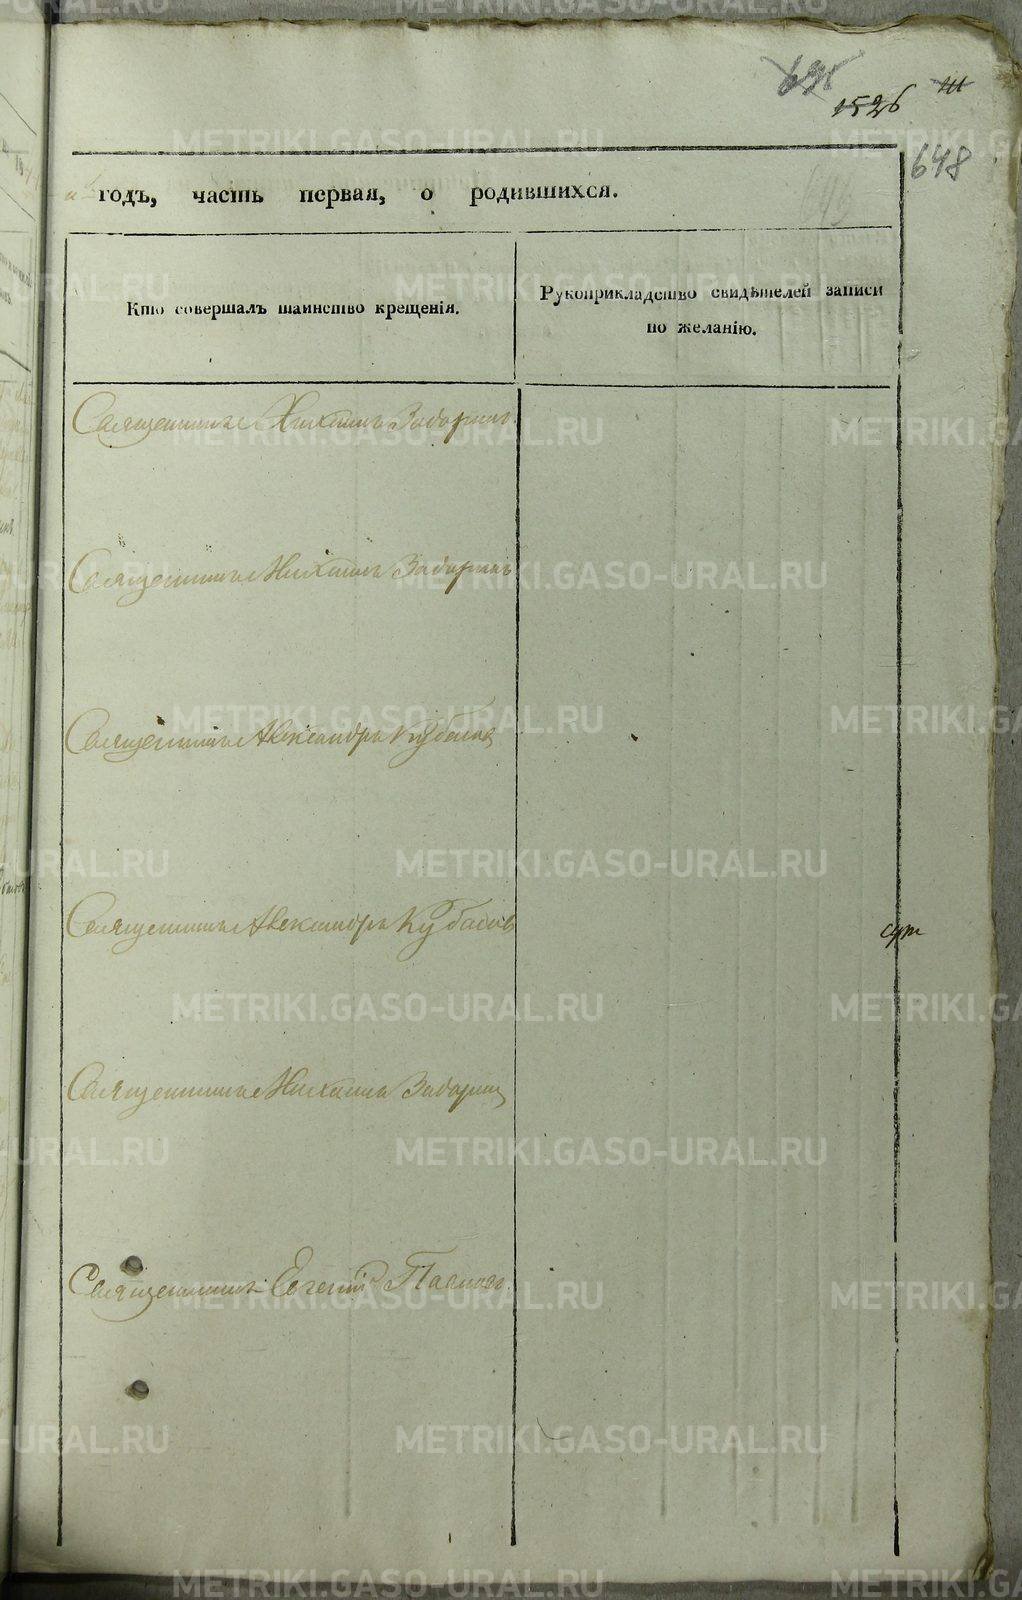 1526
648
годъ, часть первая, о родившихся.
Кто совершалъ таинство крещенія.
Рукоприкладство свидѣтелей записи
по желанію.
Священникъ Михаилъ
Священникъ Михаилъ
Священникъ Александръ Кубасов
Священникъ Александръ Кубасов
Священникъ Михаилъ
Священникъ Евгеній Поповъ
METRIKI.GASO-URAL.RU